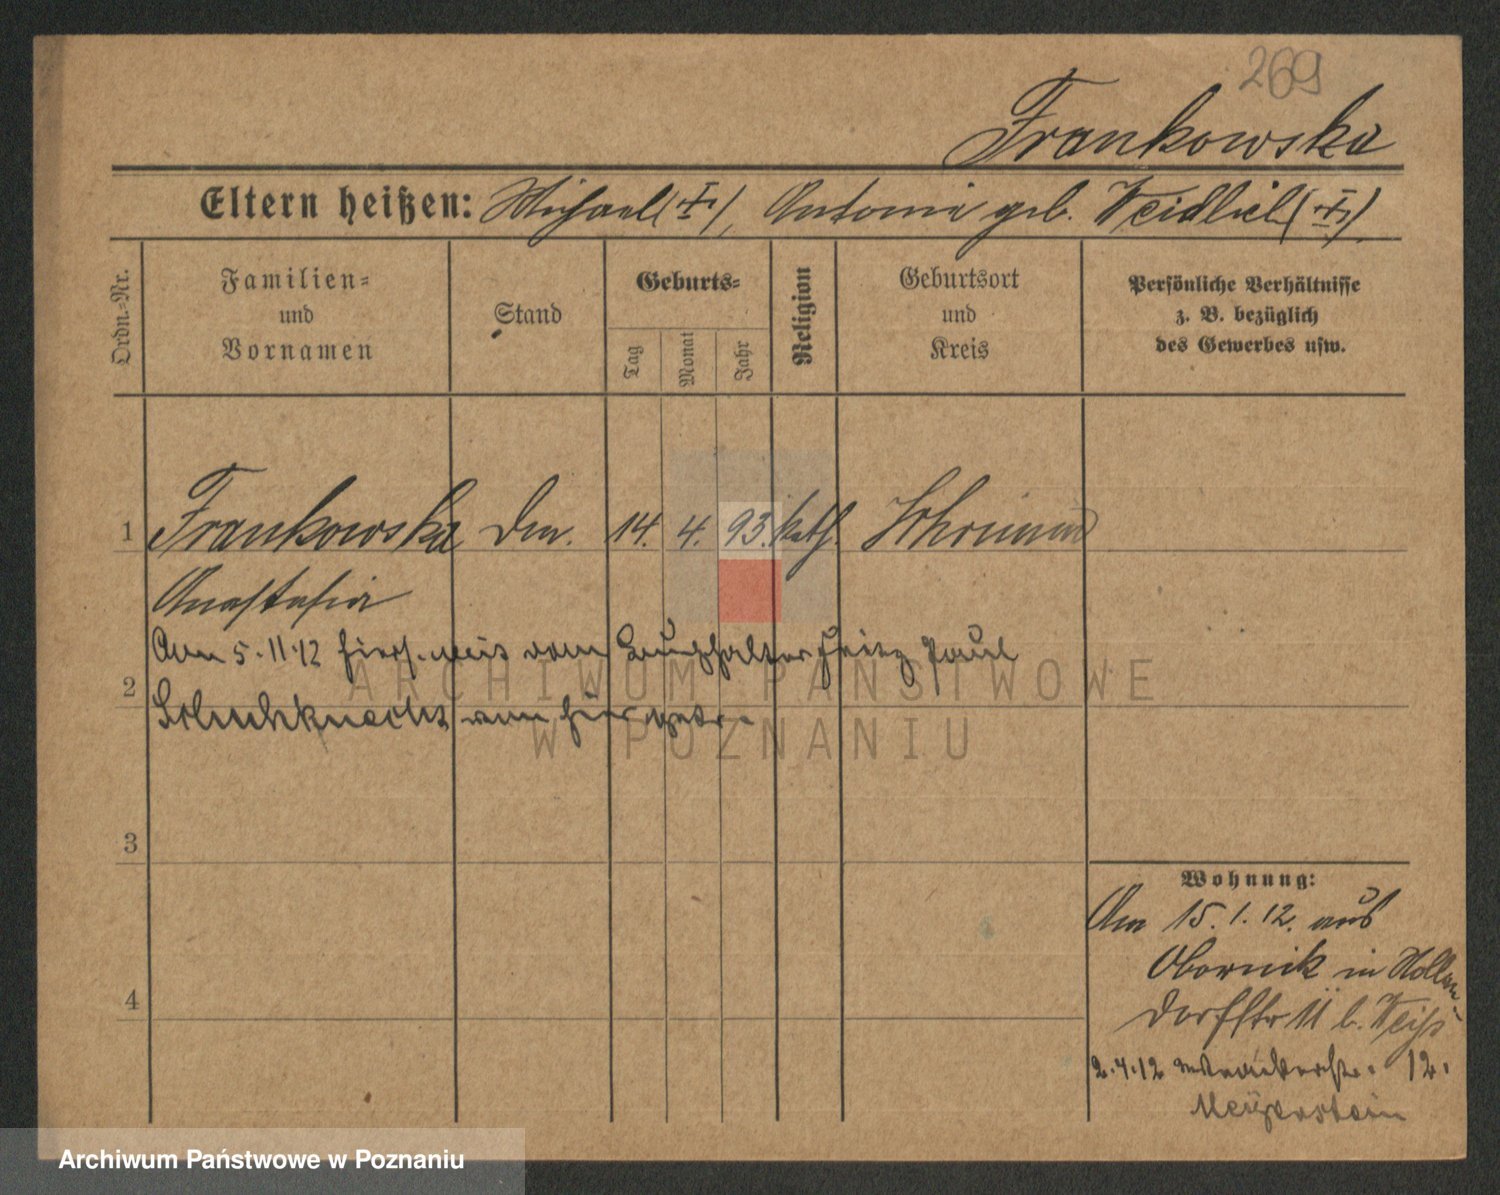 269
Frankowska
Eltern heißen: Michael (+), Antonie geb. Weidlich (+)
Ordn.-Nr.
Familien- und Vornamen
Stand
Geburts-
Tag
Monat
Jahr
Religion
Geburtsort und Kreis
Persönliche Verhältnisse
z. B. bezüglich
des Gewerbes usw.
1 Frankowska 14. 4. 93. kath.
Anastasia
Am 5.11.12 hiers. mit dem Buchhalter Fritz Paul
2
3
4
Wohnung:
Am 15.1.12. aus
Obornik in Hollen-
dorfstr 11 b. Weiß
2.4.12 12.
ARCHIWUM PAŃSTWOWE
W POZNANIU
Archiwum Państwowe w Poznaniu